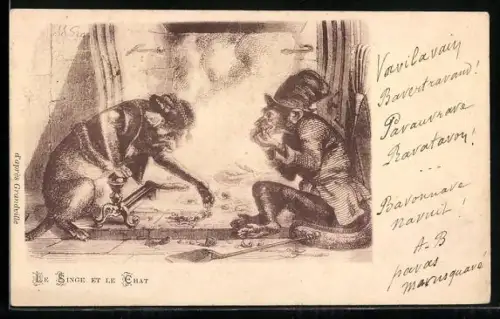 d'après Grandville
Le Singe et le Chat
Vavilavain
Bavertravaud!
Pavauvrave
Ravatavon!
...
Bavonnave
navuit!
A-B
pavas